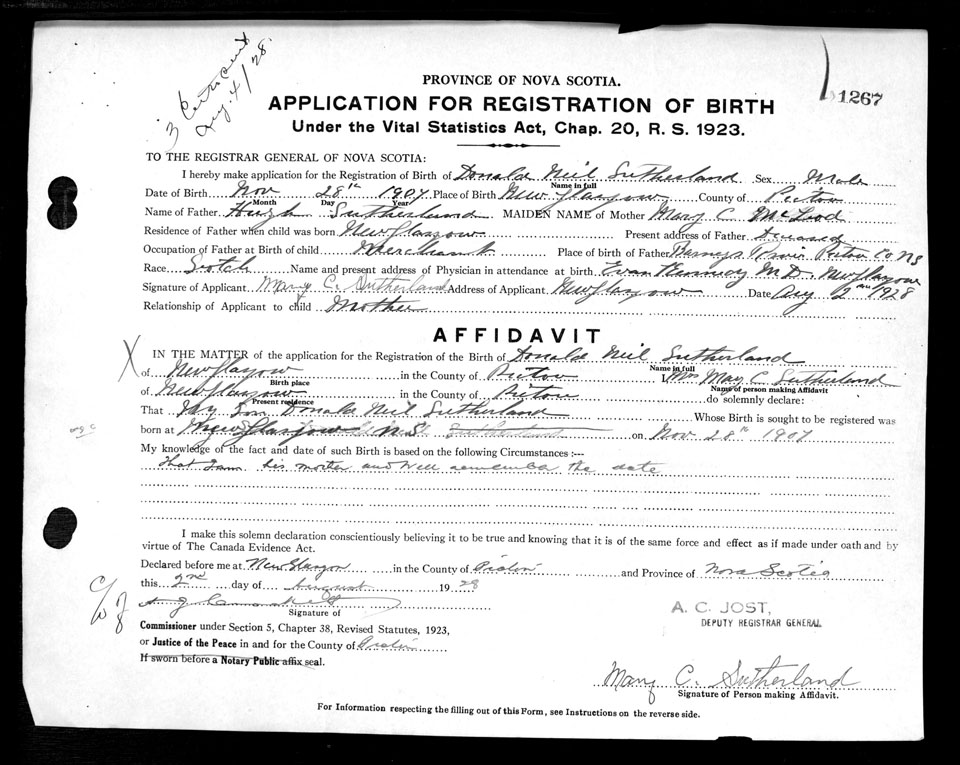 3 Certs sent
Aug. 4/28.
1267
PROVINCE OF NOVA SCOTIA.
APPLICATION FOR REGISTRATION OF BIRTH
Under the Vital Statistics Act, Chap. 20, R. S. 1923.
TO THE REGISTRAR GENERAL OF NOVA SCOTIA:
I hereby make application for the Registration of Birth of Donald Neil Sutherland Sex Male
Name in full
Date of Birth Nov 28th 1907 Place of Birth New Glasgow County of Pictou
Month Day Year
Name of Father Hugh Sutherland MAIDEN NAME of Mother Mary C McLeod
Residence of Father when child was born New Glasgow Present address of Father deceased
Occupation of Father at Birth of child Merchant Place of birth of Father Barneys River Pictou Co NS
Race Scotch Name and present address of Physician in attendance at birth Evan Kennedy M D. New Glasgow
Signature of Applicant Mary C. Sutherland Address of Applicant New Glasgow Date Aug 2nd 1928
Relationship of Applicant to child Mother
AFFIDAVIT
X IN THE MATTER of the application for the Registration of the Birth of Donald Neil Sutherland
Name in full
of New Glasgow in the County of Pictou I, Mrs Mary C Sutherland
Birth place Name of person making Affidavit
of New Glasgow in the County of Pictou do solemnly declare:
Present residence
That My Son Donald Neil Sutherland Whose Birth is sought to be registered was
born at New Glasgow N.S. Sutherland on Nov 28th 1907
My knowledge of the fact and date of such Birth is based on the following Circumstances :—
that I am his mother and well remember the date
I make this solemn declaration conscientiously believing it to be true and knowing that it is of the same force and effect as if made under oath and by
virtue of The Canada Evidence Act.
Declared before me at New Glasgow in the County of Pictou and Province of Nova Scotia
this 2nd day of August 1928
Signature of
A. C. JOST,
DEPUTY REGISTRAR GENERAL
Commissioner under Section 5, Chapter 38, Revised Statutes, 1923,
or Justice of the Peace in and for the County of Pictou
If sworn before a Notary Public affix seal.
Mary C. Sutherland
Signature of Person making Affidavit.
For Information respecting the filling out of this Form, see Instructions on the reverse side.